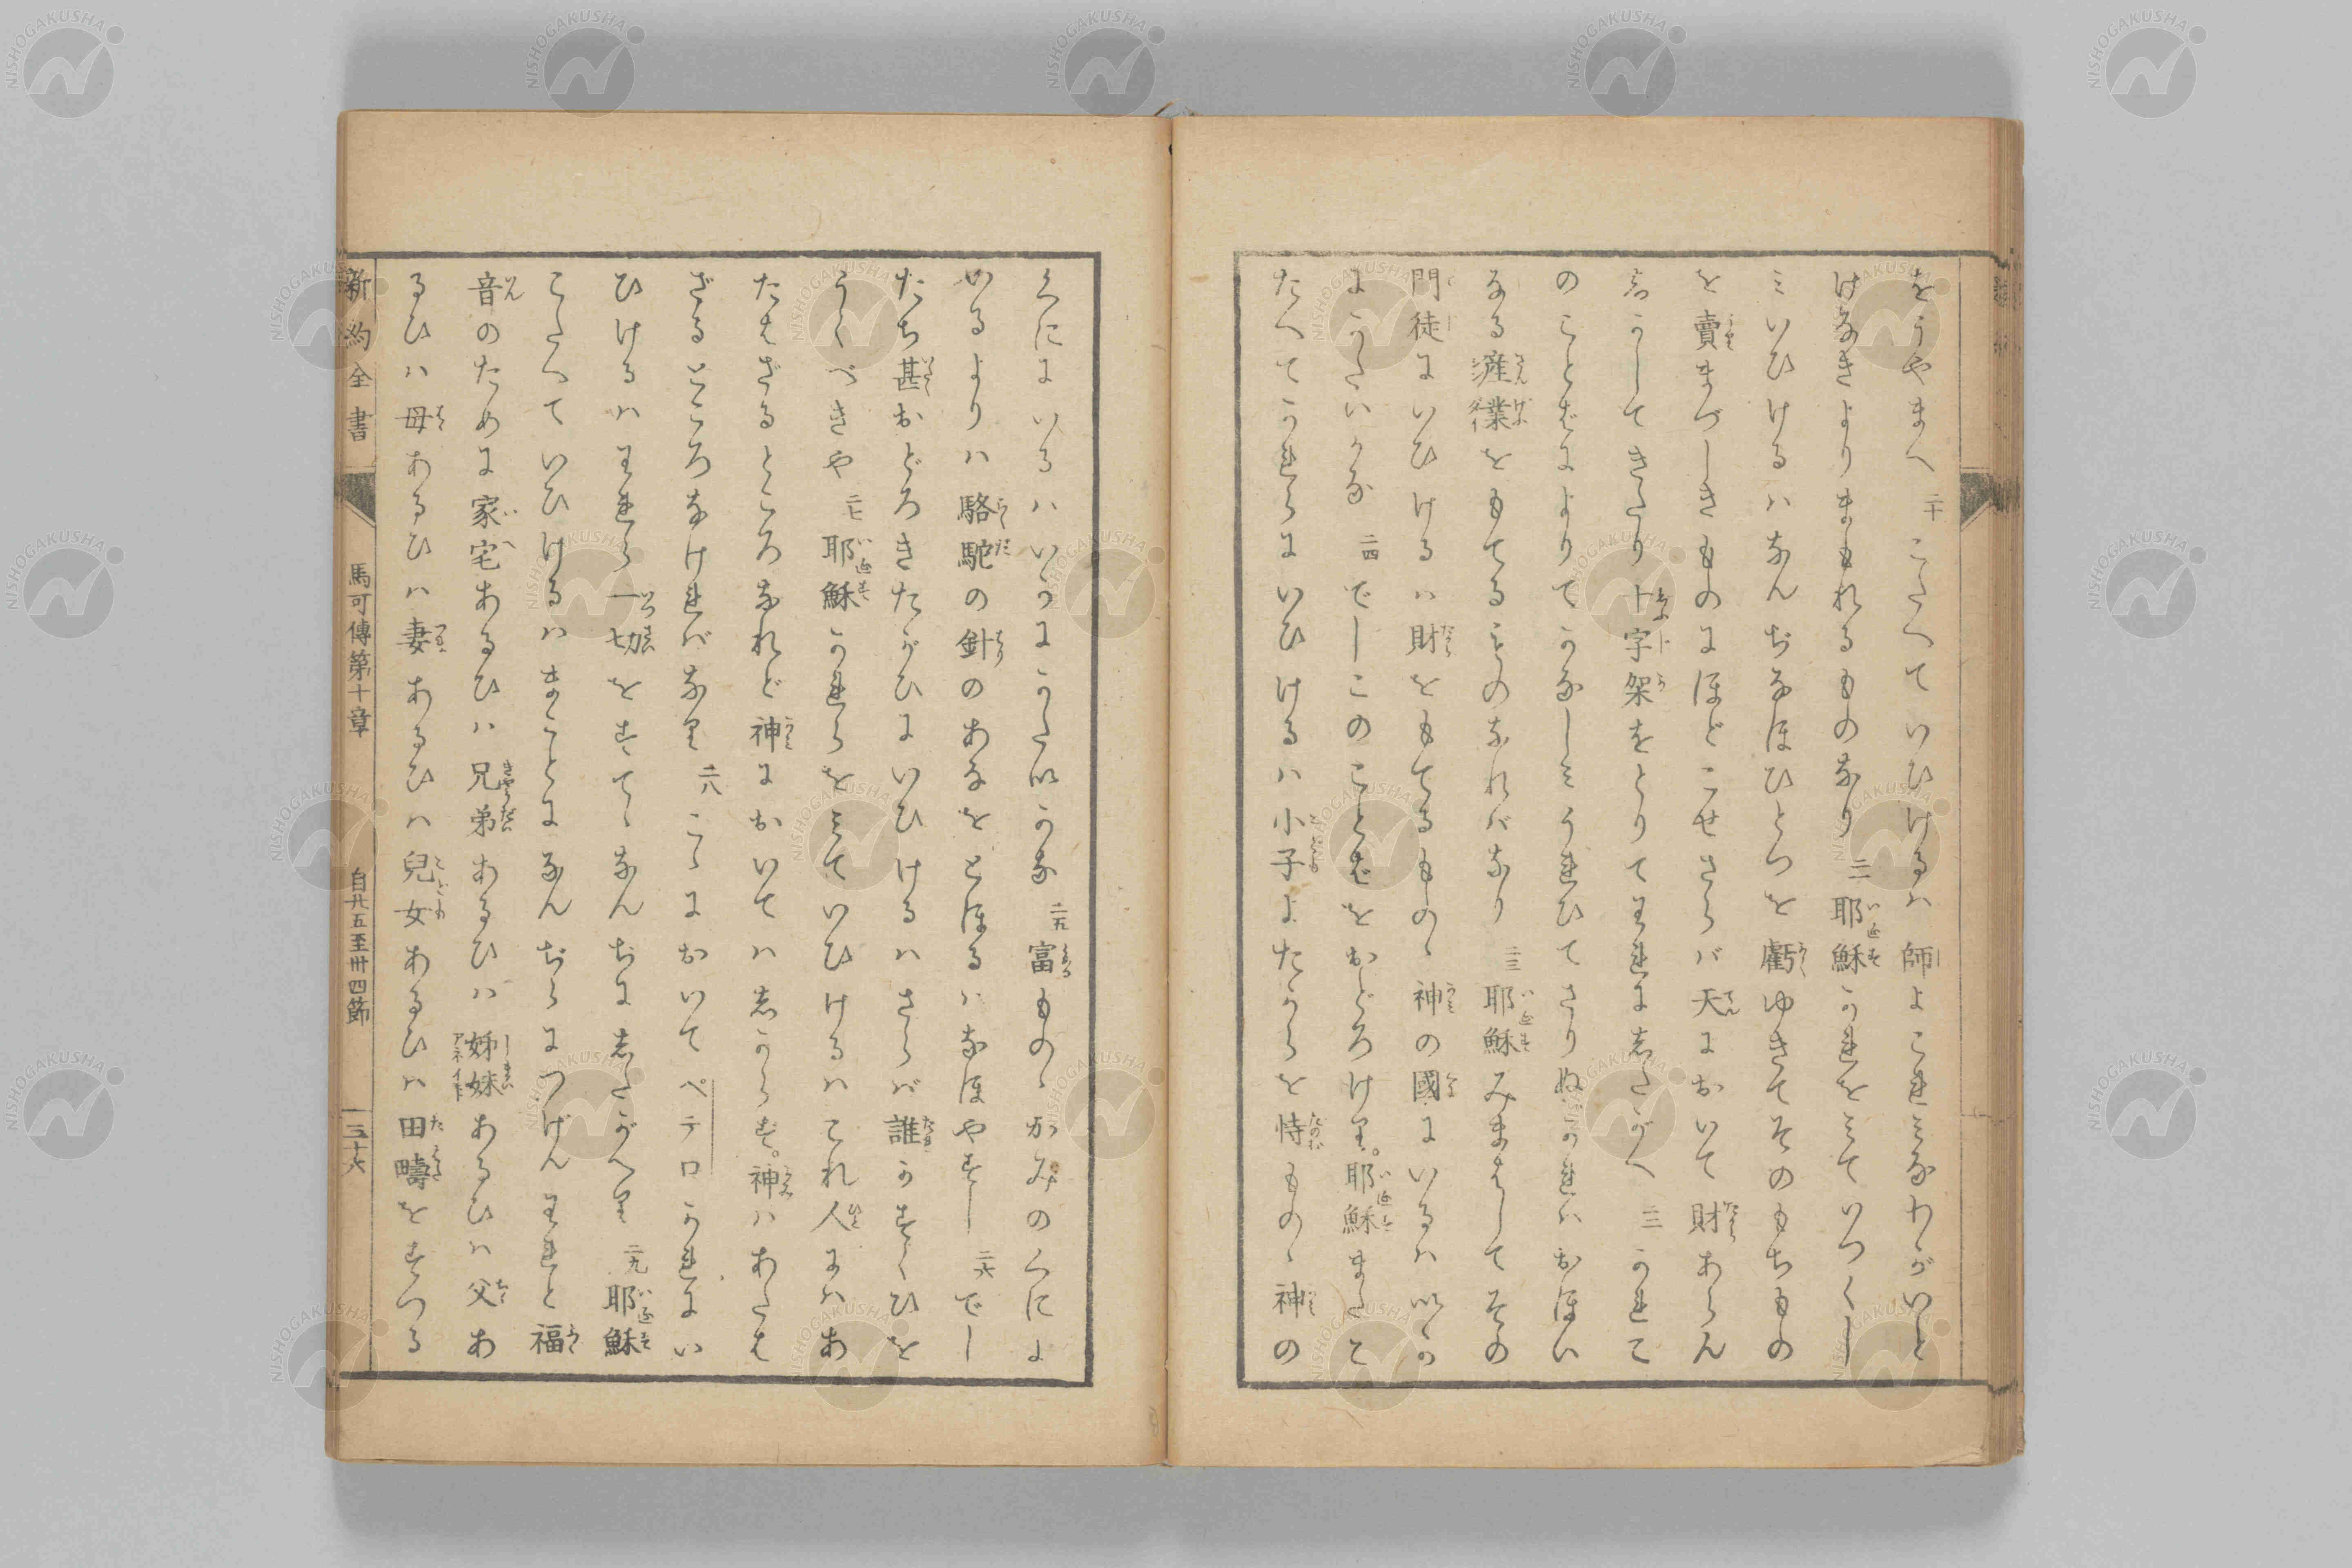 をうやまへ 二十 こたへていひけるハ師よこれミなわれゝがいと
けなきよりまもれるものなり 二一 耶穌かれをミていつくし
ミいひけるハなんぢなほひとつを虧ゆきてそのもちもの
を賣まづしきものにほどこせさらバ天において財あらん
志かしてきたり十字架をとりてわれに志たがへ 二二 かれこ
のことばによりてかなしミうれひてさりぬかれハおほい
なる産業をもてるものなれバなり 二三 耶穌みまはしてその
門徒にいひけるハ財をもてるものゝ神の國にいるハいか
にかたいかな 二四 でしこのことばをおどろけり。耶穌またこ
たへてかれらにいひけるハ小子よたからを恃ものゝ神の
くににいるハいかにかたいかな 二五 富ものゝかみのくによ
いるよりハ駱駝の針のあなをとほるハなほやすし 二六 でし
たち甚おどろきたがひにいひけるハさらバ誰かすくひを
うくべきや 二七 耶穌かれらをミていひけるハこれ人にハあ
たはざるところなれど神においてハ志からず。神ハあたは
ざるところなけれバなり 二八 こゝにおいてペテロかれにい
ひけるハわれら一切をすてゝなんぢに志たがへり 二九 耶穌
こたへていひけるハまことになんぢらにつげんわれと福
音のために家宅あるひハ兄弟あるひハ姊妹あるひハ父あ
るひハ母あるひハ妻あるひハ兒女あるひハ田疇をすつる
新約全書 馬可傳第十章 自廿五至卅四節 三十六